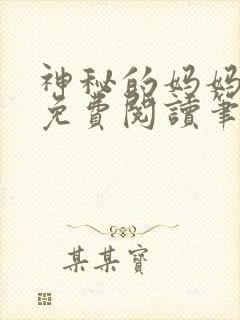 神秘的妈妈
免費閱讀筆
某某寶